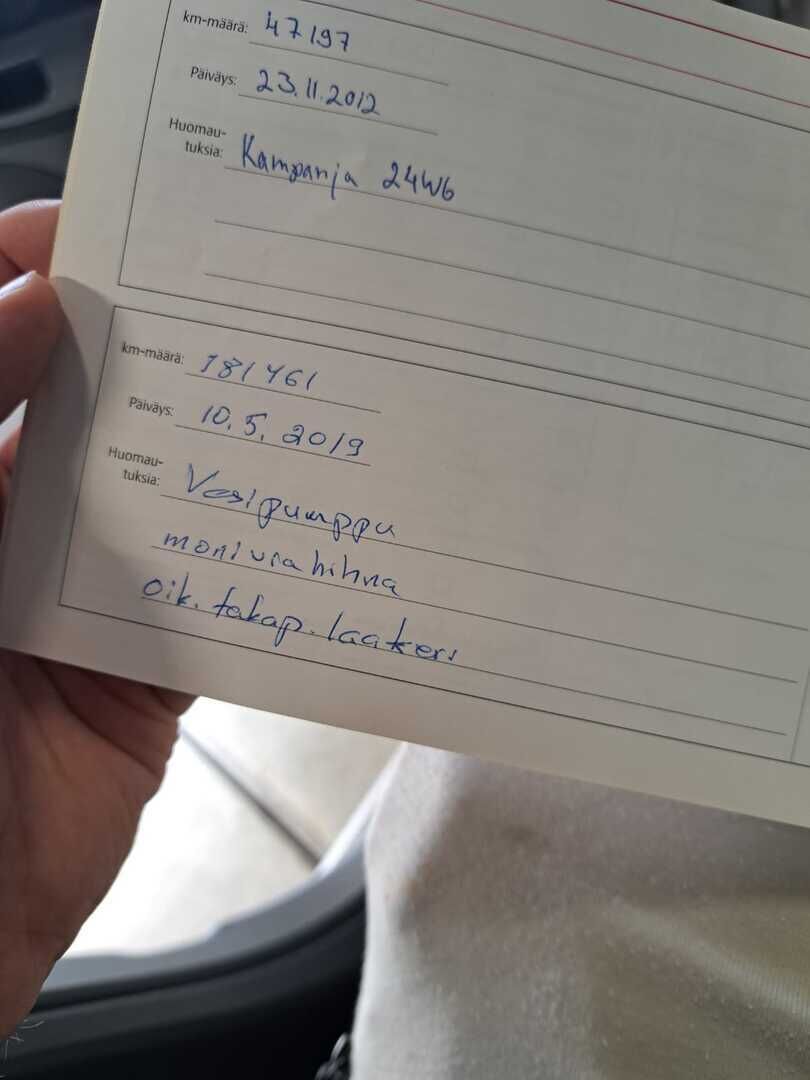 km-määrä: 47197
Päiväys: 23.11.2012
Huomau-
tuksia: Kampanja 24W6
km-määrä: 181461
Päiväys: 10.5.2019
Huomau-
tuksia: Vesipumppu
moniurahihna
oik. takap. laakeri